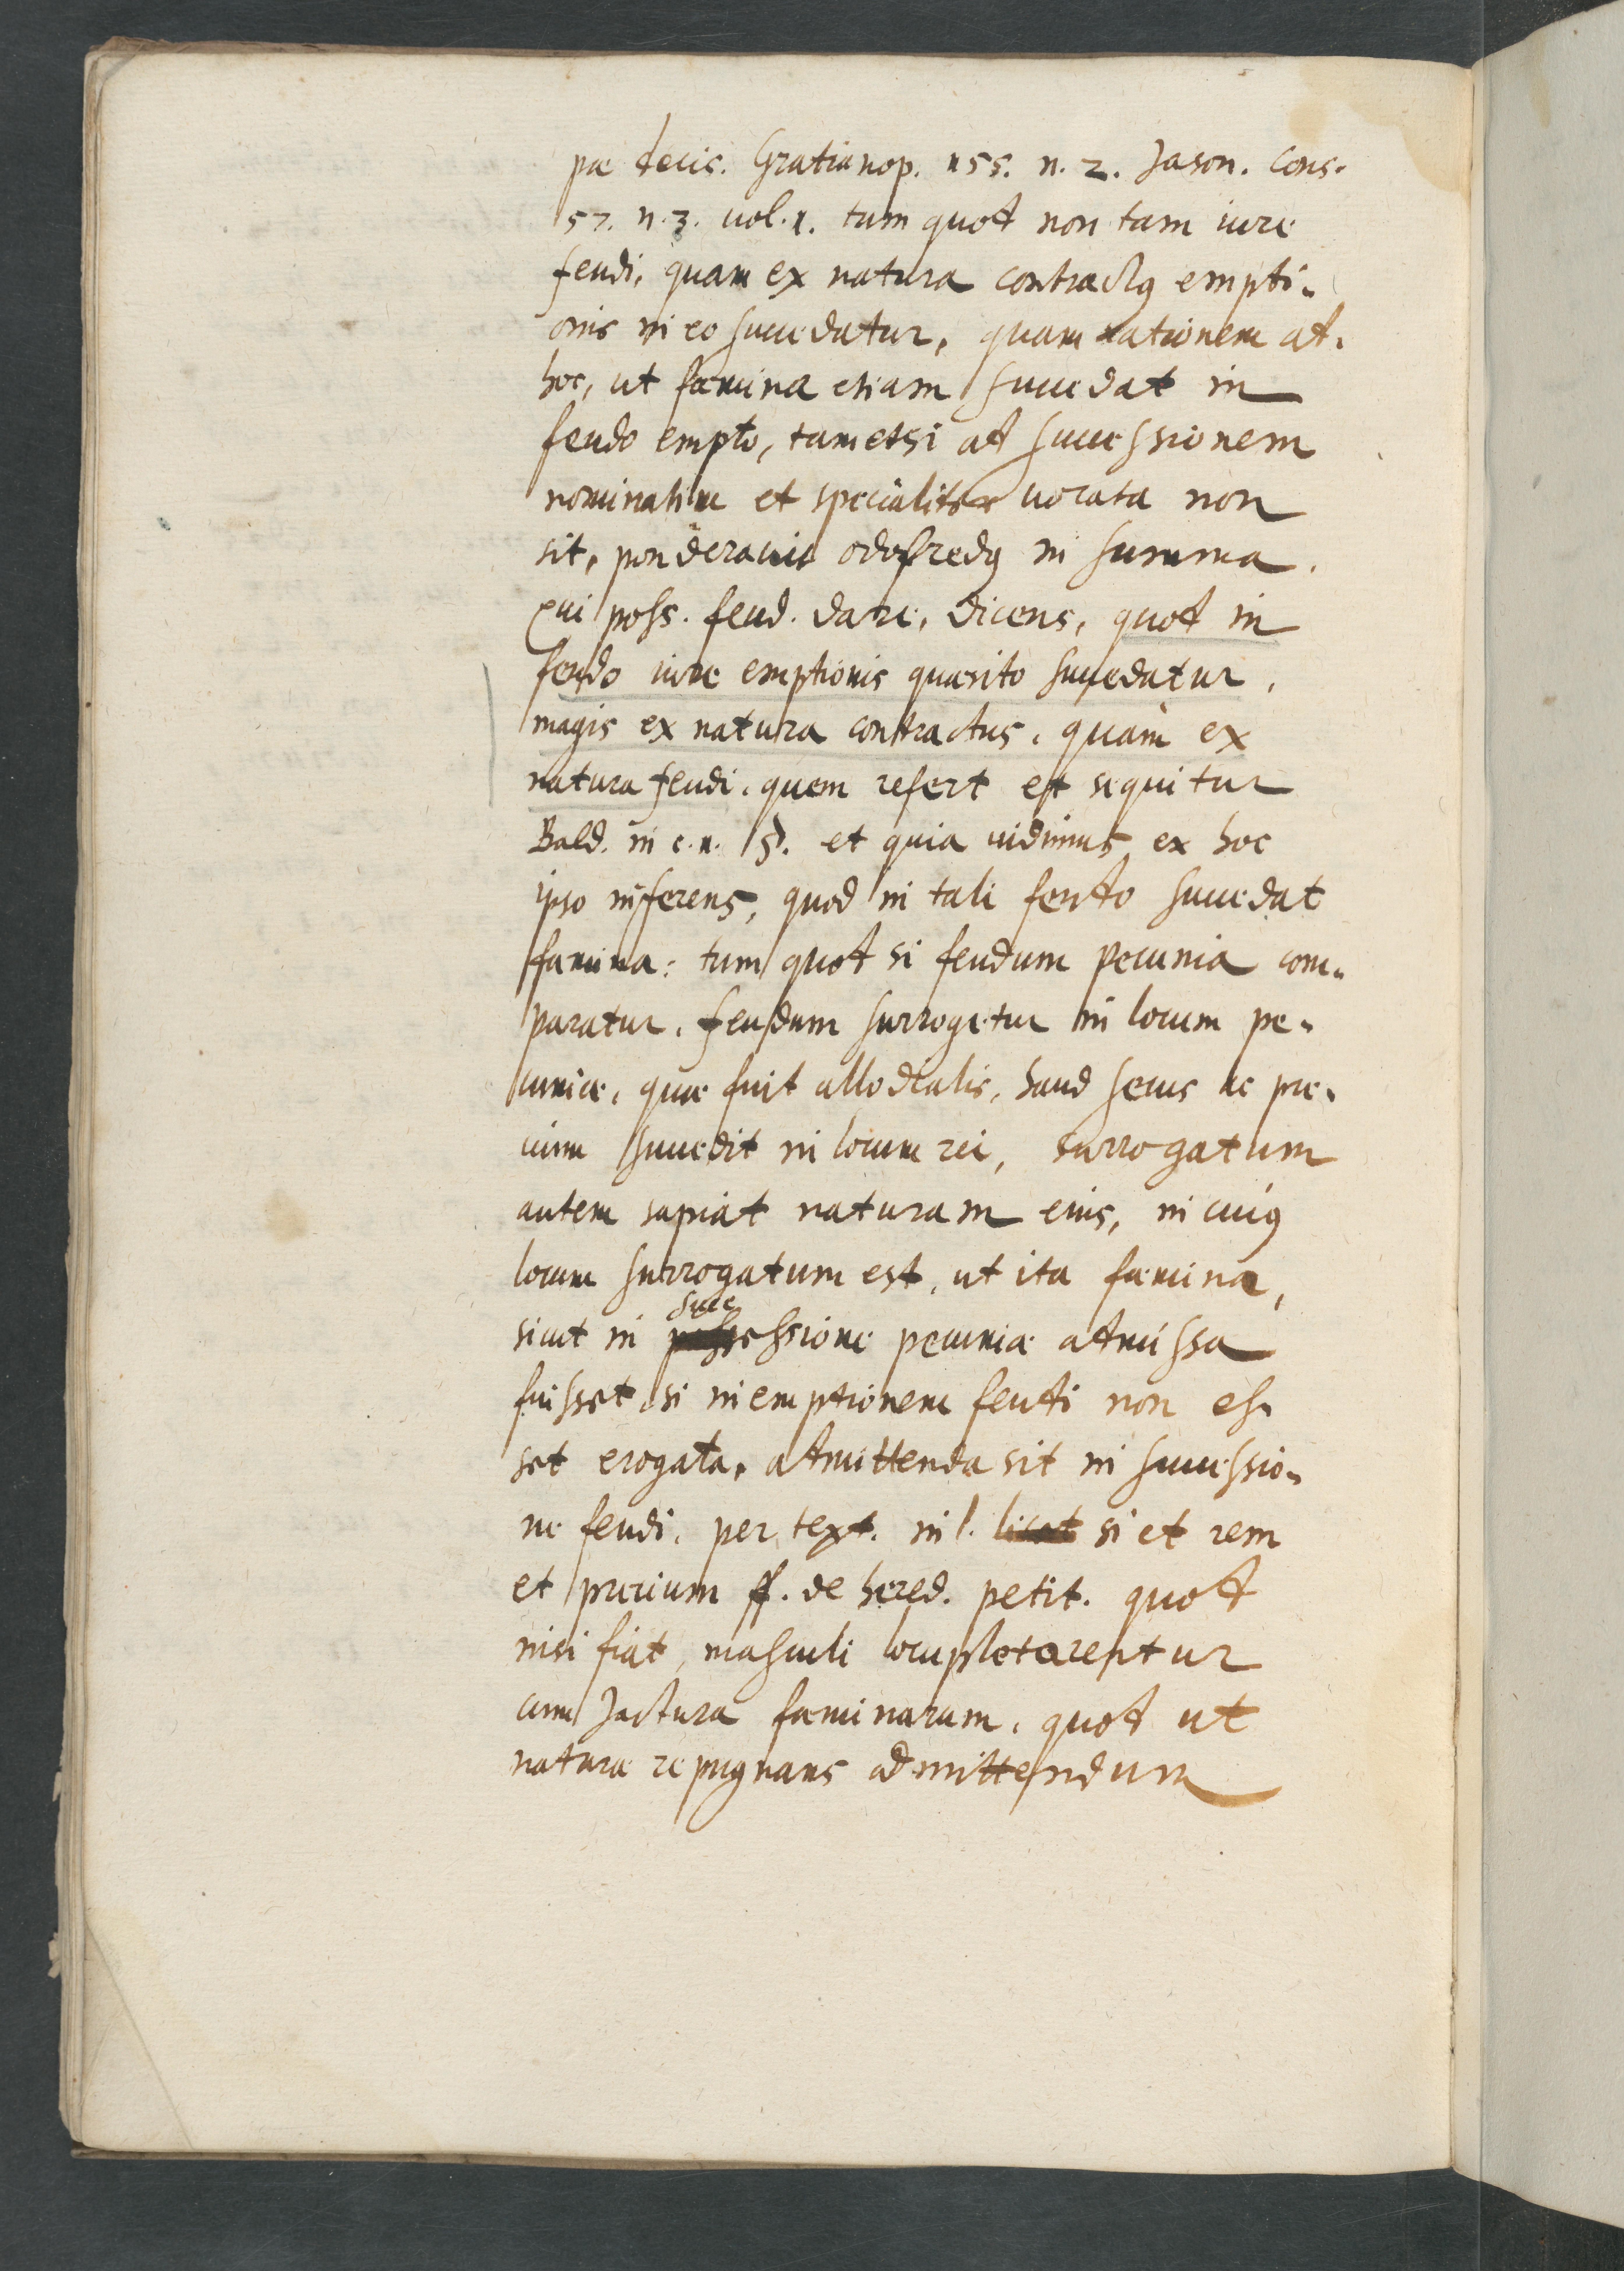 pæ decis. Gratianop. 455. n. 2. Jason. cons.
57. n. 3. uol. 1. tum quod non tam iure
feudi, quam ex natura contractus empti-
onis in eo succedatur, quam rationem ad
hoc, ut fæmina etiam succedat in
feudo empto, tametsi ad successionem
nominatim et specialiter uocata non
sit, ponderauit odofredus in summa.
qui poss. feud. dare, dicens, quod in
feudo iure emptionis quæsito succedatur,
magis ex natura contractus, quàm ex
natura feudi, quem refert et sequitur
Bald. in c. n. §. et quia uidimus ex hoc
ipso inferens, quod in tali feudo succedat
fæmina: tum quod si feudum pecunia com-
paratur, feudum surrogetur in locum pe-
cuniæ, quæ fuit allodialis, haud secus ac pre-
cium succedit in locum rei, surrogatum
autem sapiat naturam eius, in cuius
locum surrogatum est, ut ita fæmina,
sicut in successione pecuniæ admissa
fuisset, si in emptionem feudi non es-
set erogata, admittenda sit in successio-
ne feudi, per text. in l. licet si et rem
et precium ff. de hered. petit. quod
nisi fiat, masculi locupletarentur
cum Jactura fæminarum, quod ut
naturæ repugnans admittendum